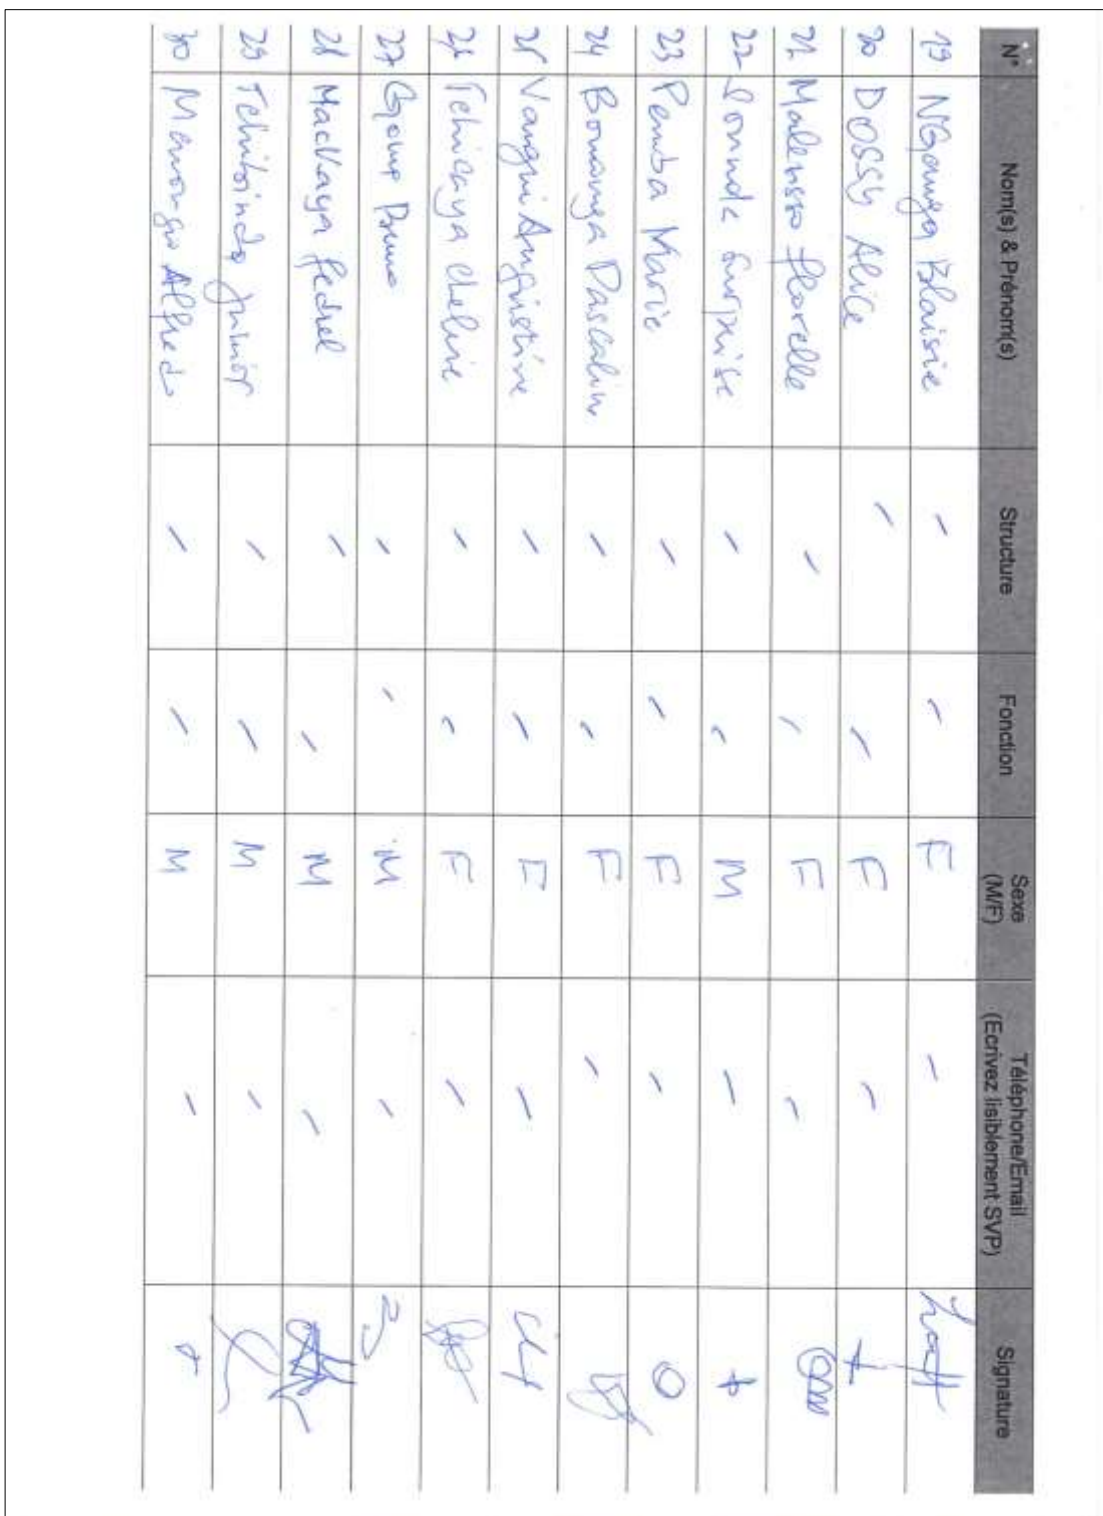 N° Nom(s) & Prénom(s) Structure Fonction Sexe (M/F) Téléphone/Email (Ecrivez lisiblement SVP) Signature
19 NGanga Blaisie - - F -
20 DOSSY Alice - - F -
21 Malensso florelle - - F -
22 surprise - - M -
23 Pemba Marie - - F -
24 Bomanga Pascaline - - F -
25 Vangui Augustine - - F -
26 Tchicaya cheline - - F -
27 - - M -
28 Mackaya fedrel - - M -
29 junior - - M -
30 Alfred - - M -